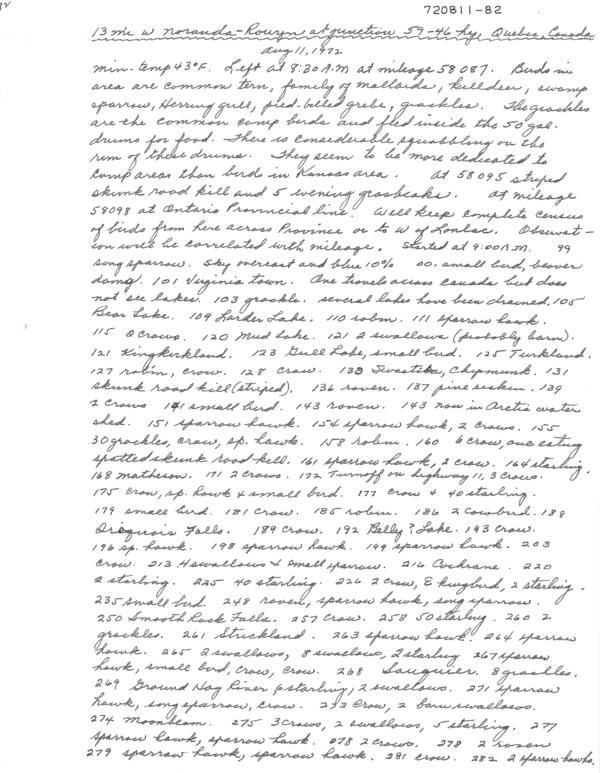 720811-82
13 mi w Noranda-Rouyn at junction 59-46 hy, Quebec, Canada
Aug 11, 1972
min. temp 43°F. Left at 8:30 A.M at mileage 58087. Birds in
area are common tern, family of mallards, killdeer, swamp
sparrow, Herring gull, pied-billed grebe, grackles. The grackles
are the common camp birds and fled inside the 50 gal.
drums for food. There is considerable squabbling on the
rim of these drums. They seem to be more dedicated to
camp areas than birds in Kansas area. At 58095 striped
skunk road kill and 5 evening grosbeaks. At mileage
58098 at Ontario Provincial line. Will keep complete census
of birds from here across Province or to W of Lonlac. Observat-
ion will be correlated with mileage. Started at 9:00 A.M. 99
song sparrow. Sky overcast and blue 10% 00. small bird, beaver
dam. 101 Virginia town. One travels across canada but does
not see lakes. 103 grackle. several lakes have been drained. 105
Bear Lake. 109 Larder Lake. 110 robin. 111 sparrow hawk.
115 2 crows. 120 Mud Lake. 121 2 swallows (probably barn).
121 King Kirkland. 123 Gull Lake, small bird. 125 Turkland.
127 robin, crow. 128 crow. 130 Swastika, Chipmunk. 131
skunk road kill (striped). 136 raven. 137 pine siskin. 139
2 crows 141 small bird. 143 raven. 143 now in Arctic water
shed. 151 sparrow hawk. 154 sparrow hawk, 2 crows. 155
30 grackles, crow, sp. hawk. 158 robin. 160 6 crow, one eating
spotted skunk road-kill. 161 sparrow hawk, 2 crow. 164 starling.
168 Matheson. 171 2 crows. 172 Turnoff on highway 11, 3 crows.
175 crow, sp. hawk & small bird. 177 crow & 40 starling.
179 small bird. 181 crow. 185 robin. 186 2 cowbird. 188
Iroquois Falls. 189 crow. 192 Belly? Lake. 193 crow.
196 sp. hawk. 198 sparrow hawk. 199 sparrow hawk. 203
crow. 213 4 swallows & small sparrow. 216 Cochrane. 220
2 starling. 225 40 starling. 226 2 crow, E kingbird, 2 starling.
235 small bird. 248 raven, sparrow hawk, song sparrow.
250 Smooth Rock Falls. 257 crow. 258 50 starling. 260 2
grackles. 261 Strickland. 263 sparrow hawk. 264 sparrow
hawk. 265 2 swallows, 8 swallows, 2 starling 267 sparrow
hawk, small bird, crow, crow. 268 Fauquier. 8 grackles.
269 Ground Hog River 6 starling, 2 swallows. 271 sparrow
hawk, song sparrow, crow. 273 crow, 2 barn swallows.
274 Moonbeam. 275 3 crows, 2 swallows, 5 starling. 277
sparrow hawk, sparrow hawk. 278 2 crows. 278 2 raven
279 sparrow hawk, sparrow hawk. 281 crow. 282 2 sparrow hawks.